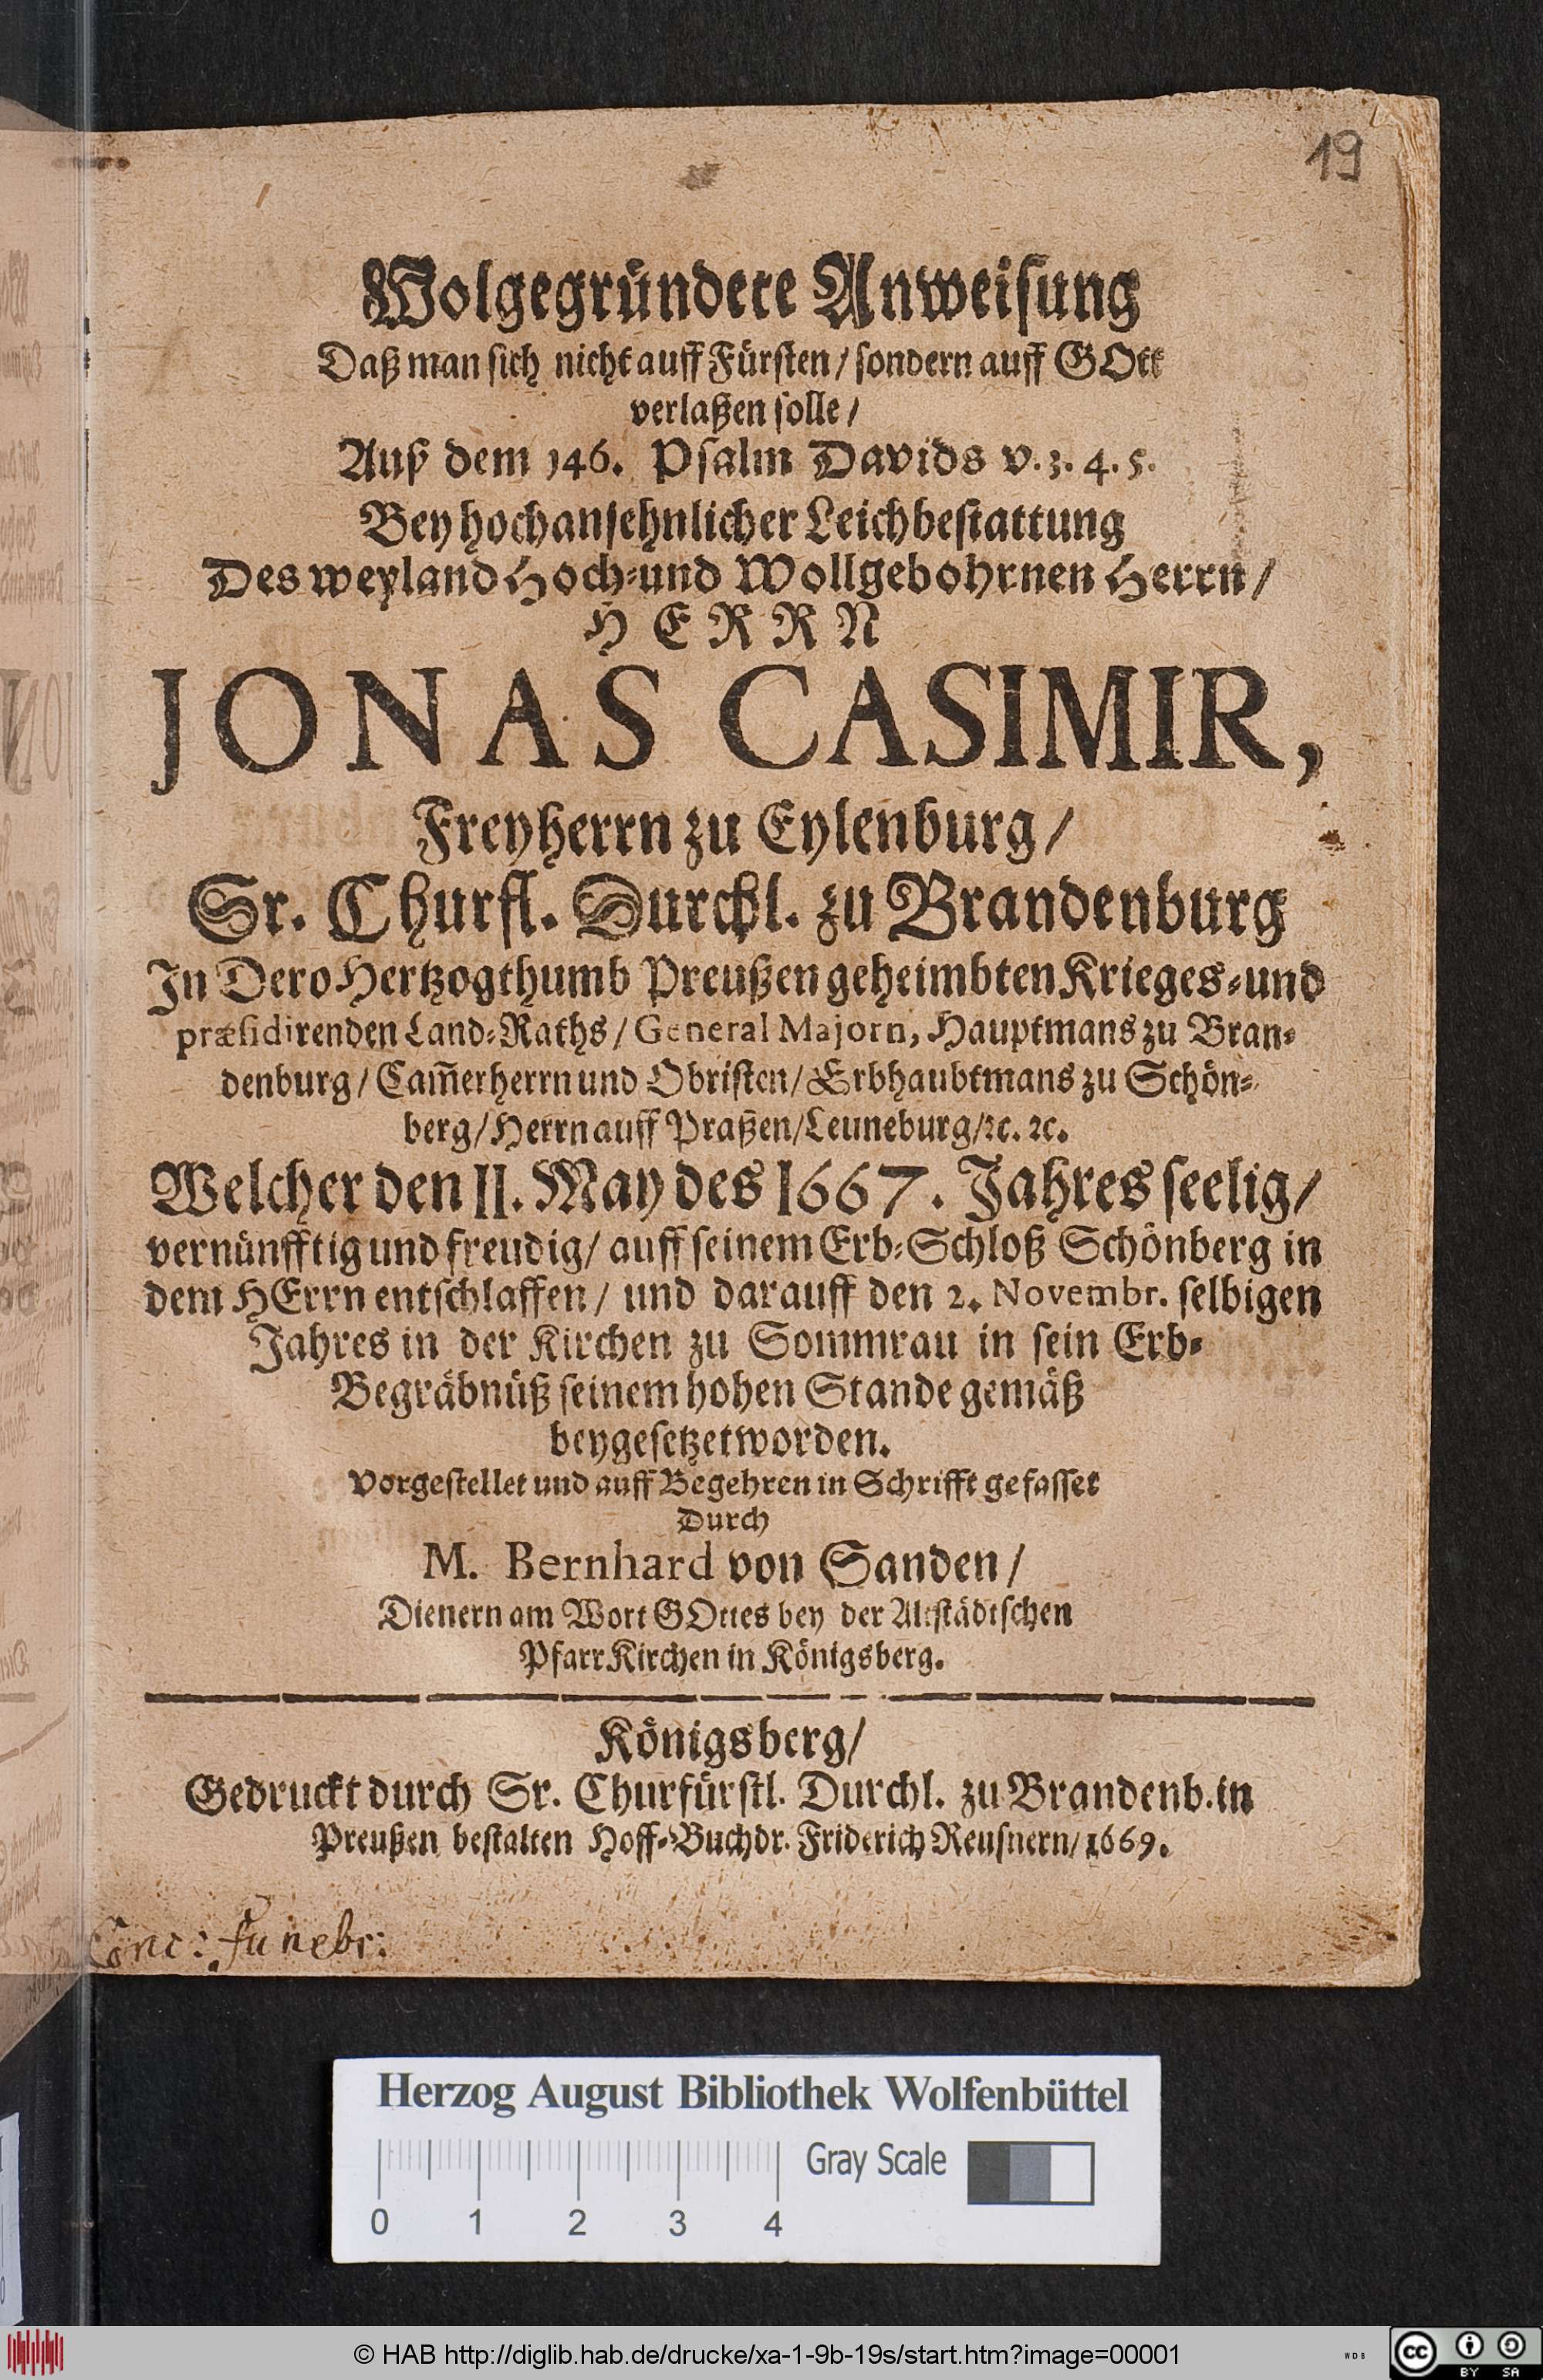 19
Wolgegründete Anweisung
Daß man sich nicht auff Fürsten / sondern auff GOtt
verlaßen solle /
Auß dem 146. Psalm Davids v. 3. 4. 5.
Bey hochansehnlicher Leichbestattung
Des weyland Hoch-und Wollgebohrnen Herrn /
HERRN
JONAS CASIMIR,
Freyherrn zu Eylenburg /
Sr. Churfl. Durchl. zu Brandenburg
In Dero Hertzogthumb Preußen geheimbten Krieges-und
præsidirenden Land-Raths / General Majorn, Hauptmans zu Bran-
denburg / Cam̃erherrn und Obristen / Erbhaubtmans zu Schön-
berg / Herrn auff Praßen / Leuneburg / ꝛc. ꝛc.
Welcher den 11. May des 1667. Jahres seelig /
vernünfftig und freudig / auff seinem Erb-Schloß Schönberg in
dem HErrn entschlaffen / und darauff den 2. Novembr. selbigen
Jahres in der Kirchen zu Sommrau in sein Erb-
Begräbnüß seinem hohen Stande gemäß
beygesetzet worden.
Vorgestellet und auff Begehren in Schrifft gefasset
Durch
M. Bernhard von Sanden /
Dienern am Wort GOttes bey der Altstädtschen
Pfarr Kirchen in Königsberg.
Königsberg /
Gedruckt durch Sr. Churfürstl. Durchl. zu Brandenb. in
Preußen bestalten Hoff-Buchdr. Friderich Reusnern / 1669.
Conc: funebr:
Herzog August Bibliothek Wolfenbüttel
Gray Scale
0 1 2 3 4
© HAB http://diglib.hab.de/drucke/xa-1-9b-19s/start.htm?image=00001
WDB
CC BY SA